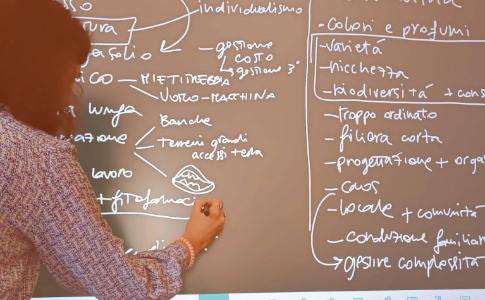 individualismo
gasolio
- gestione
costo
gestione 3°
MIETITREBBIA
UOMO-MACCHINA
lunga
Banche
Terreni grandi
accessi terra
lavoro
+ fitofarmaci
- Colori e profumi
- varietà
- ricchezza
- biodiversità + cons
- troppo ordinato
- filiera corta
- progettazione + orga
- caos
- locale + comunità
- conduzione familiar
gestire complessità